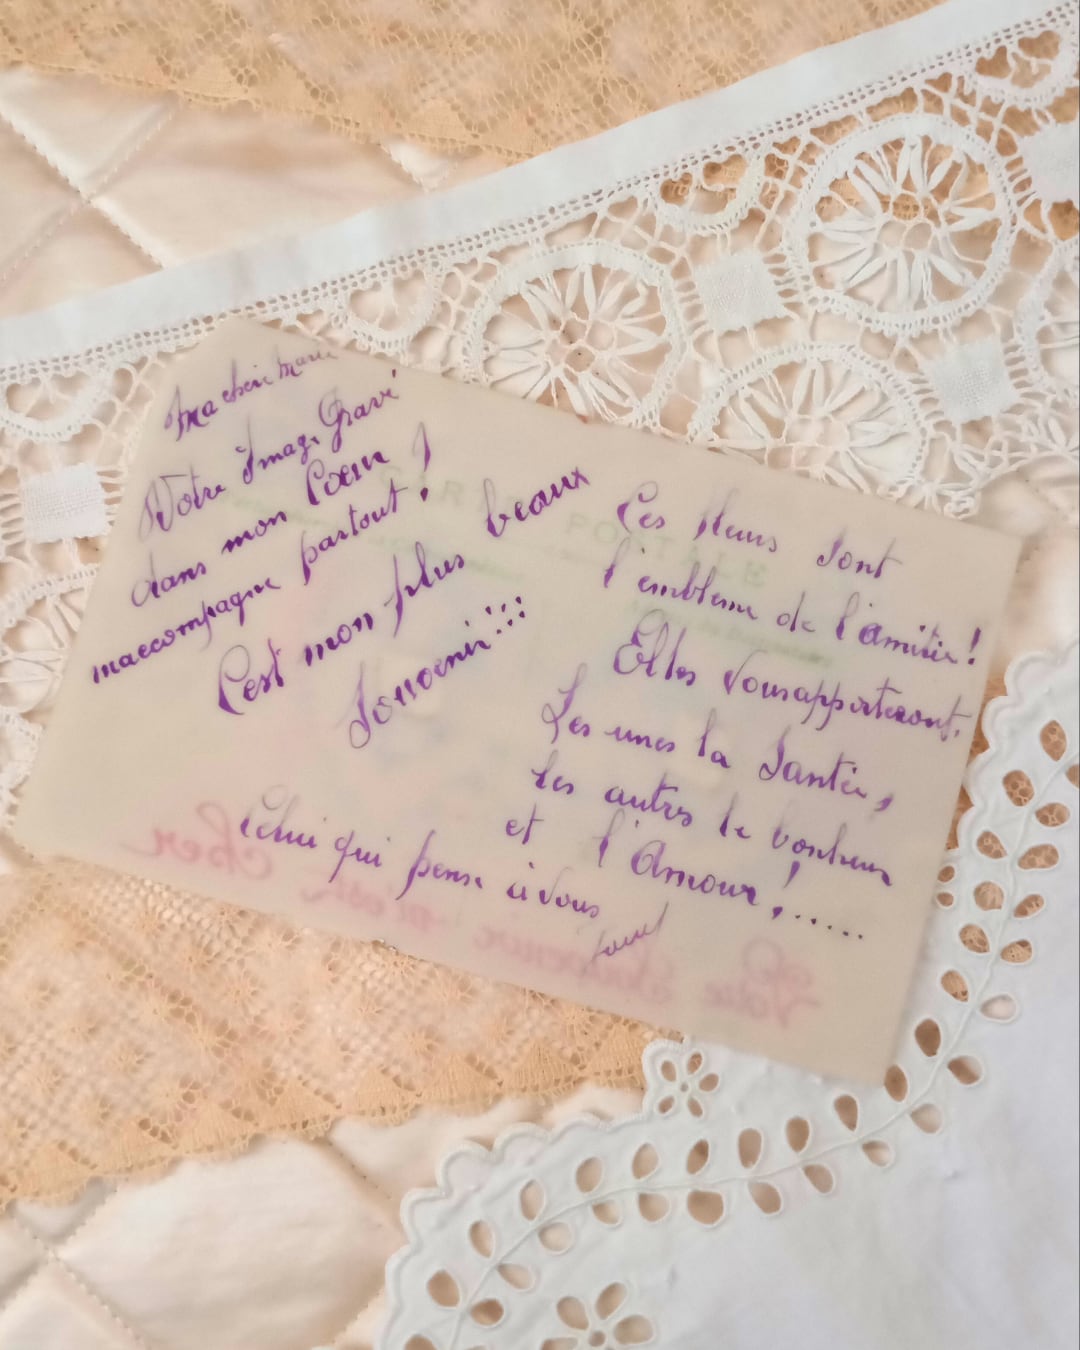 Ma cheri Marie
Votre Image Gravé
dans mon Coeur !
maccompagne partout !
C'est mon plus beaux
Souvenir !!!
Ces fleurs sont
l'embleme de l'amitié !
Elles vous apporteront,
Les unes la Santée,
les autres le bonheur
et l'Amour ! ......
Celui qui pense à vous